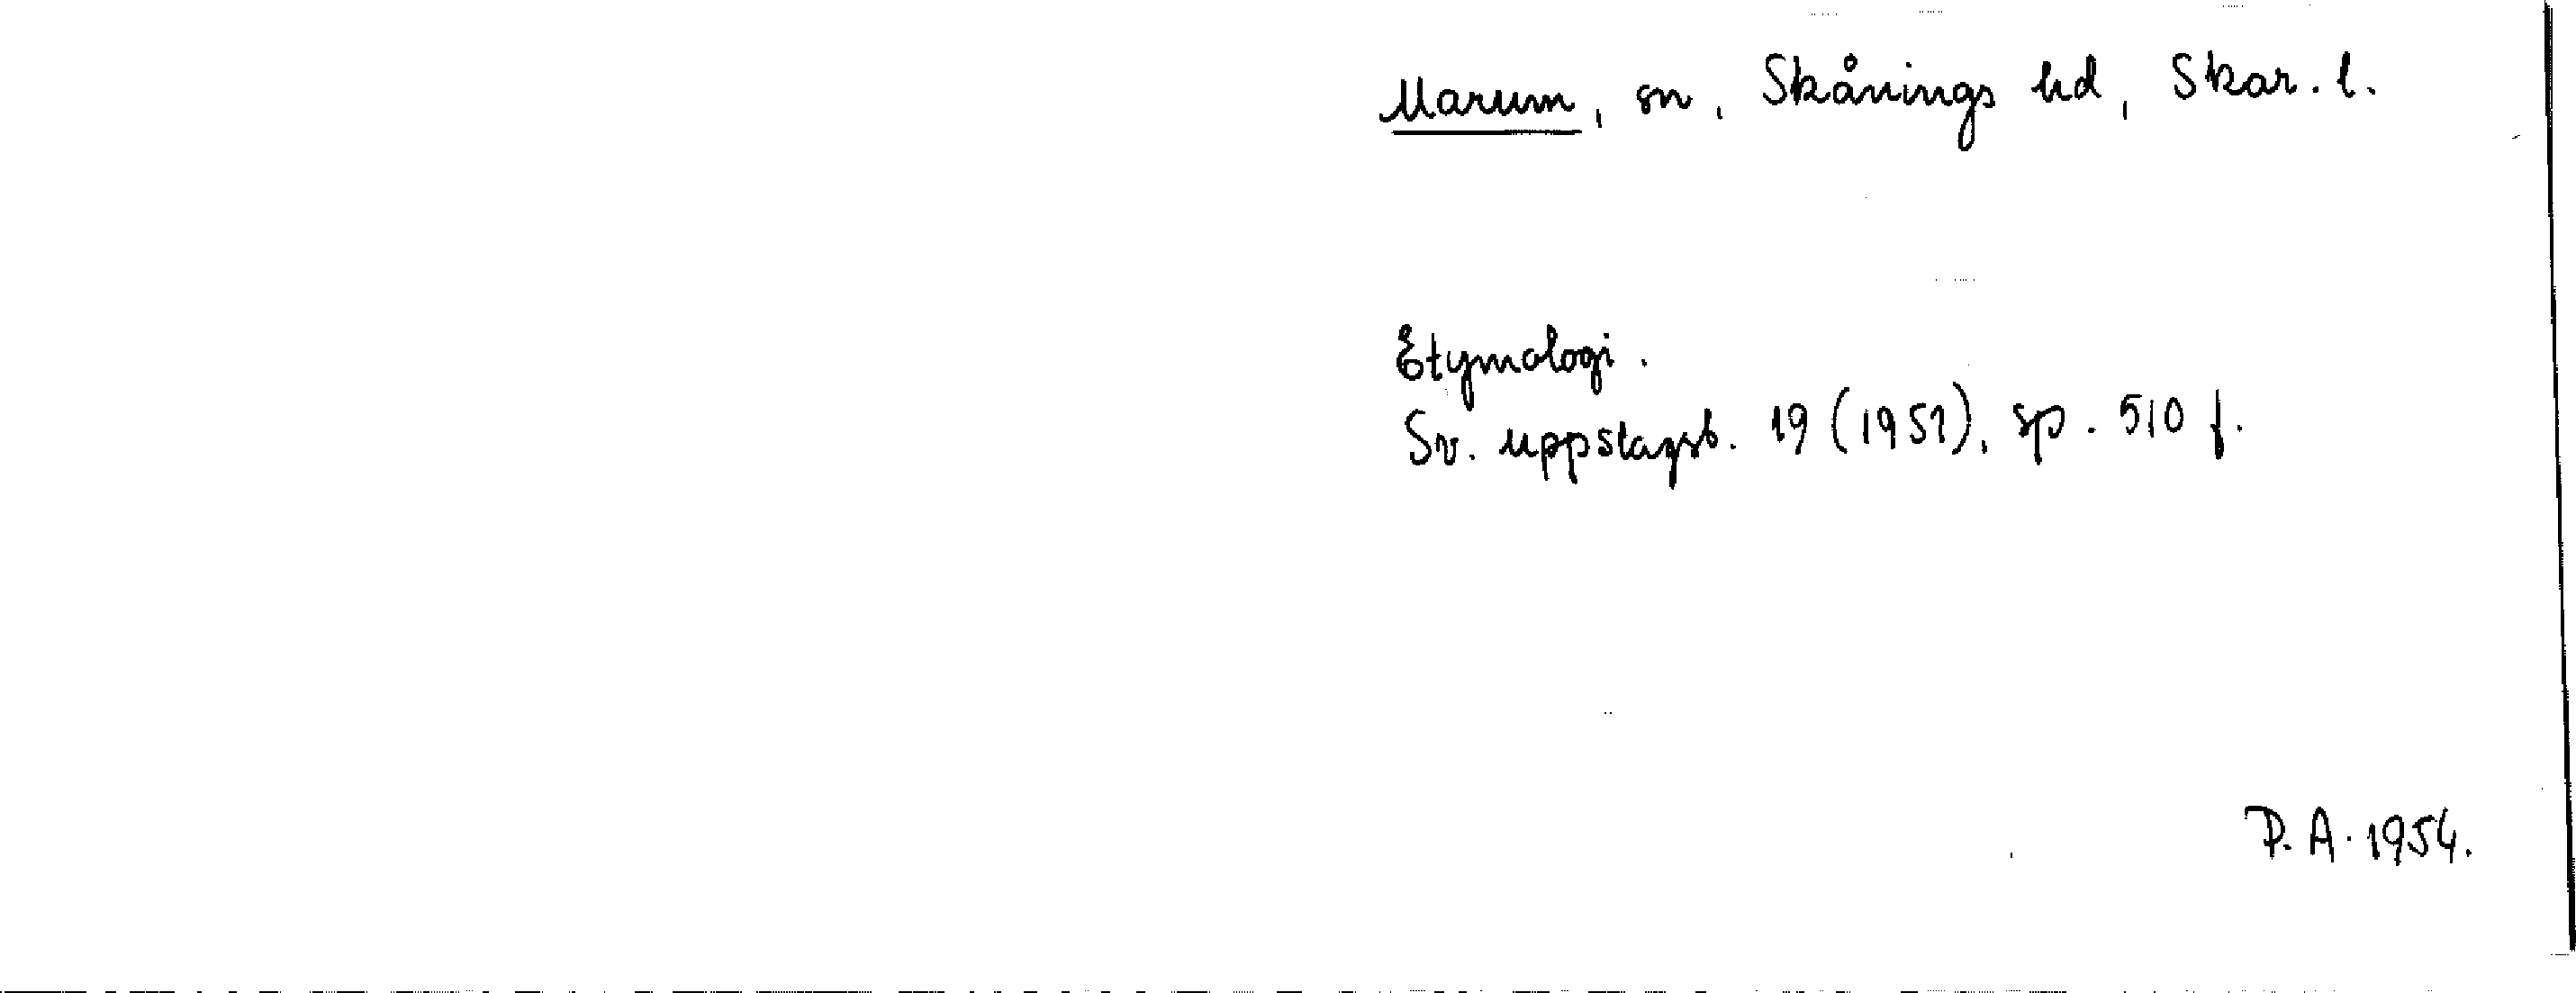 Marum, sn, Skånings hd, Skar. l.
Etymologi.
Sv. uppslagsb. 19 (1951), sp. 510 f.
P. A. 1954.